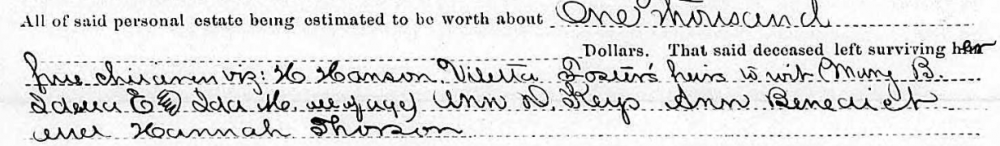 All of said personal estate being estimated to be worth about One thousand
Dollars. That said deceased left surviving her
five children viz: H. Hanson. Viletta Foster's heirs to wit (Mary B.
Idella E. Ida M. all of age) Ann D. Keys Ann Benedict
and Hannah Thorson